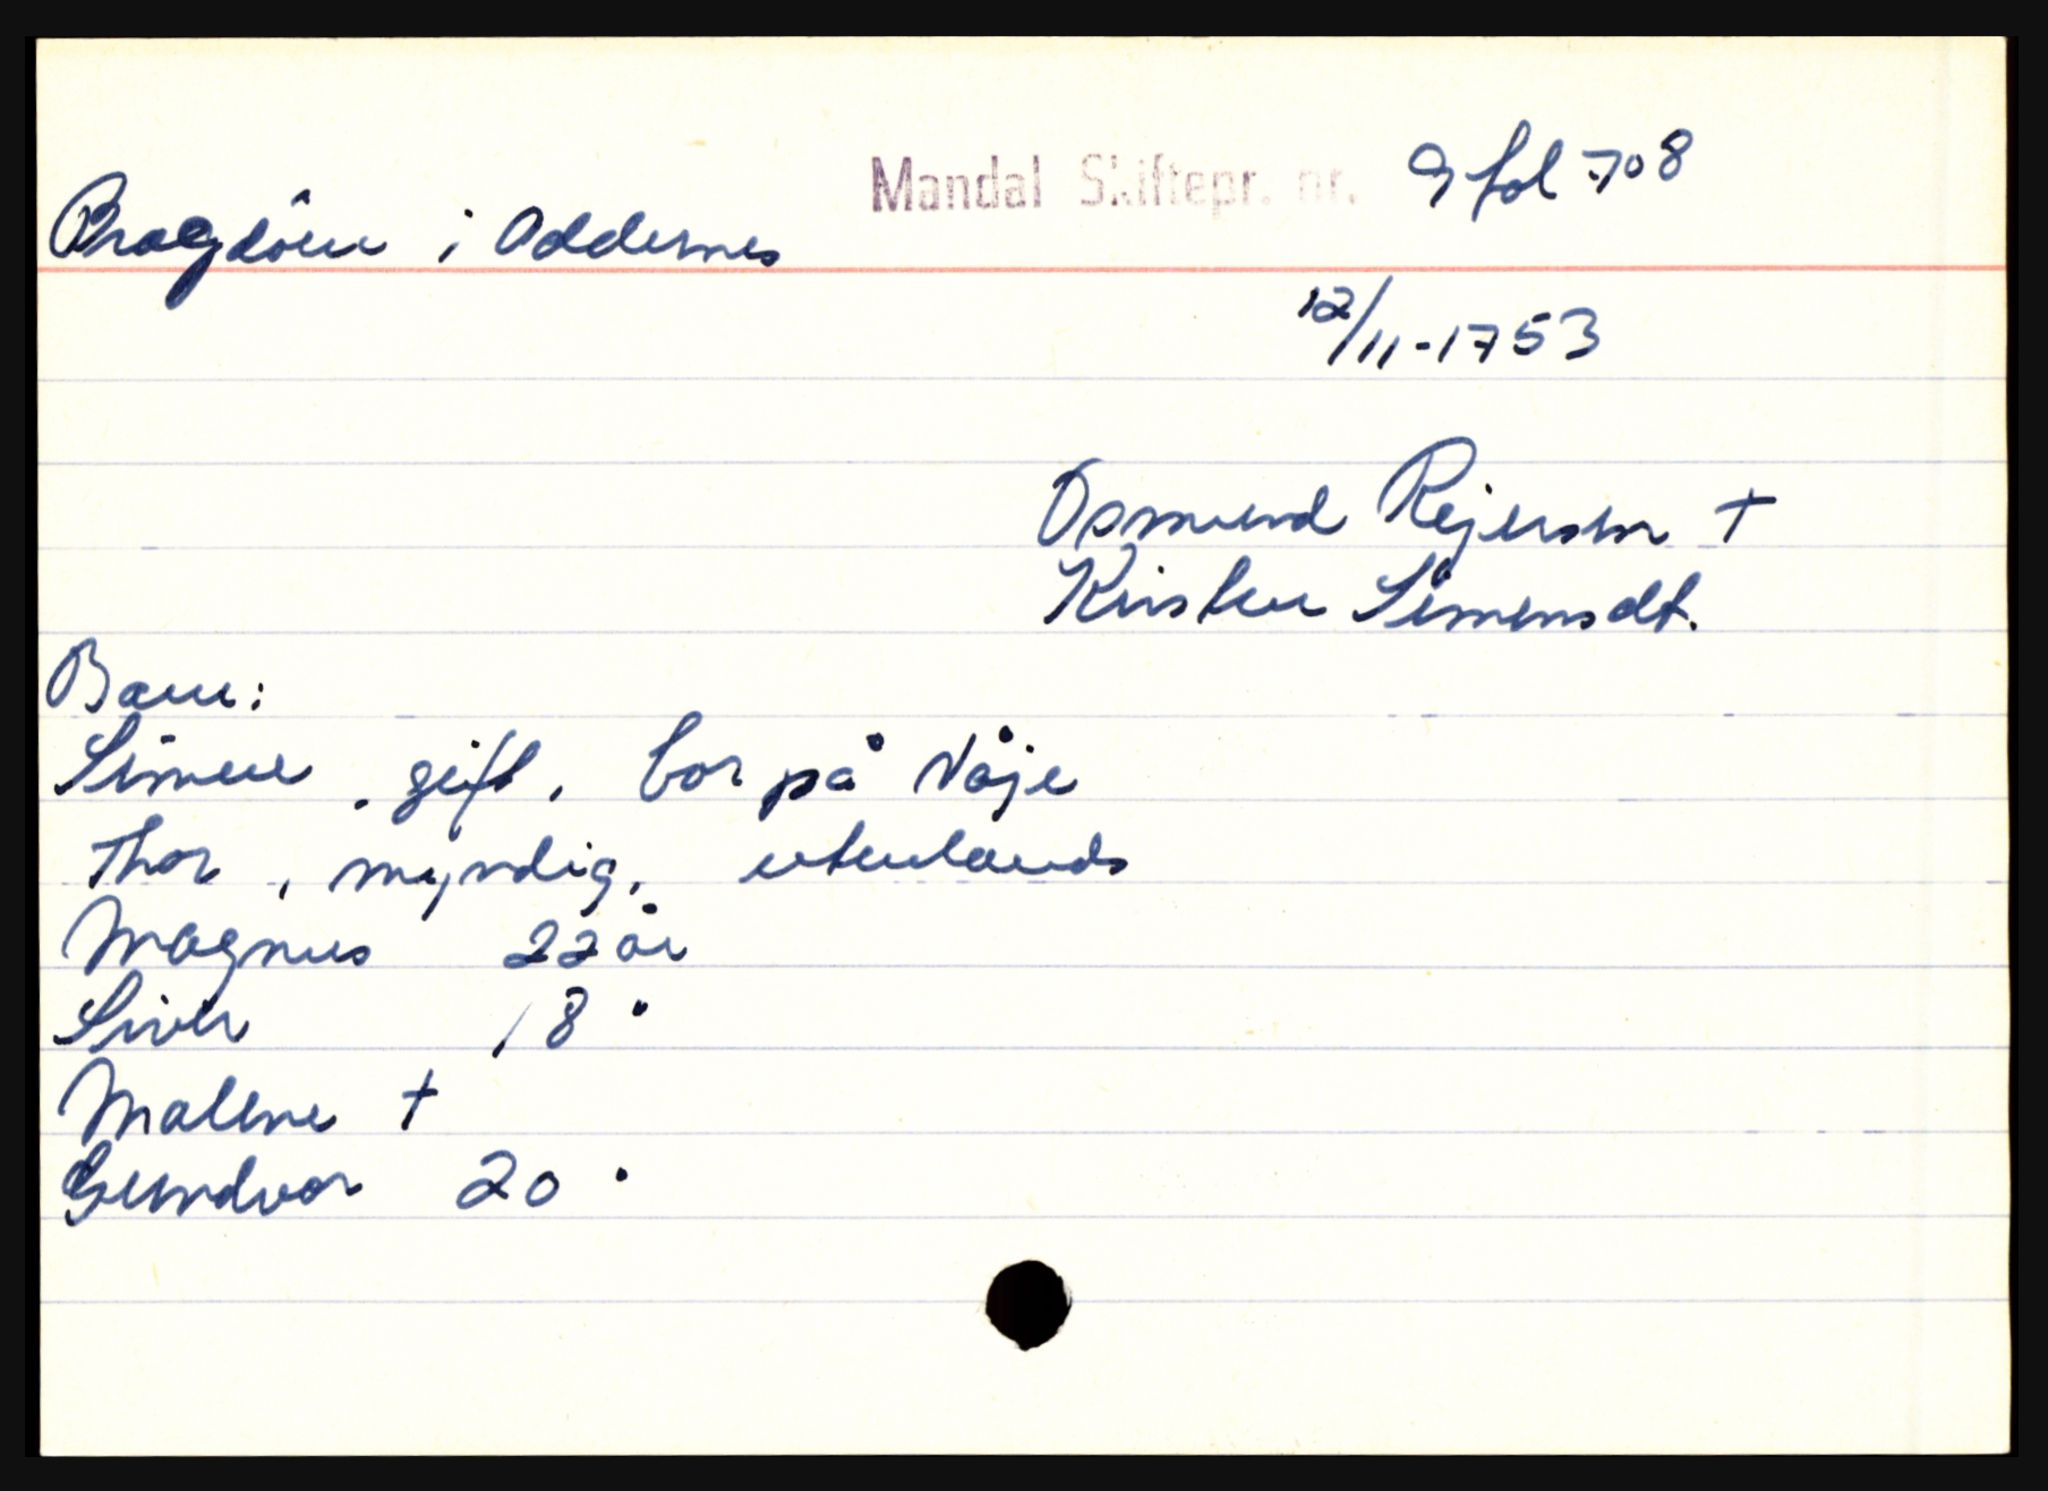 Mandal Skiftepr. nr. 9 fol 708
Bragdöen i Oddernes
12/11-1753
Osmund Rejersen †
Kirsten Simensdt.
Barn:
Simen, gift, bor på Våje
Thor, myndig, utenlands
Magnus 22 år
Siver 18 "
Malene †
Gundvor 20 "